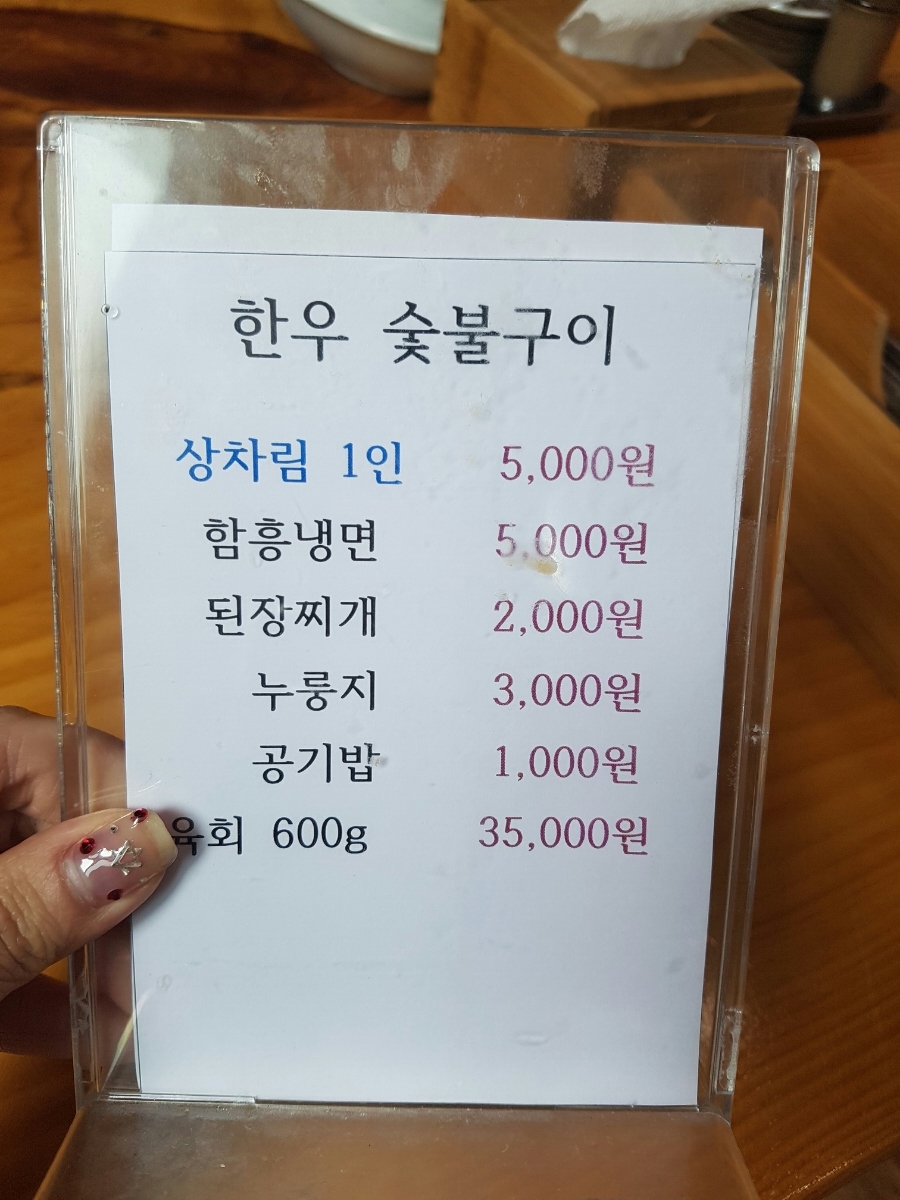 한우 숯불구이
상차림 1인 5,000원
함흥냉면 5,000원
된장찌개 2,000원
누룽지 3,000원
공기밥 1,000원
육회 600g 35,000원